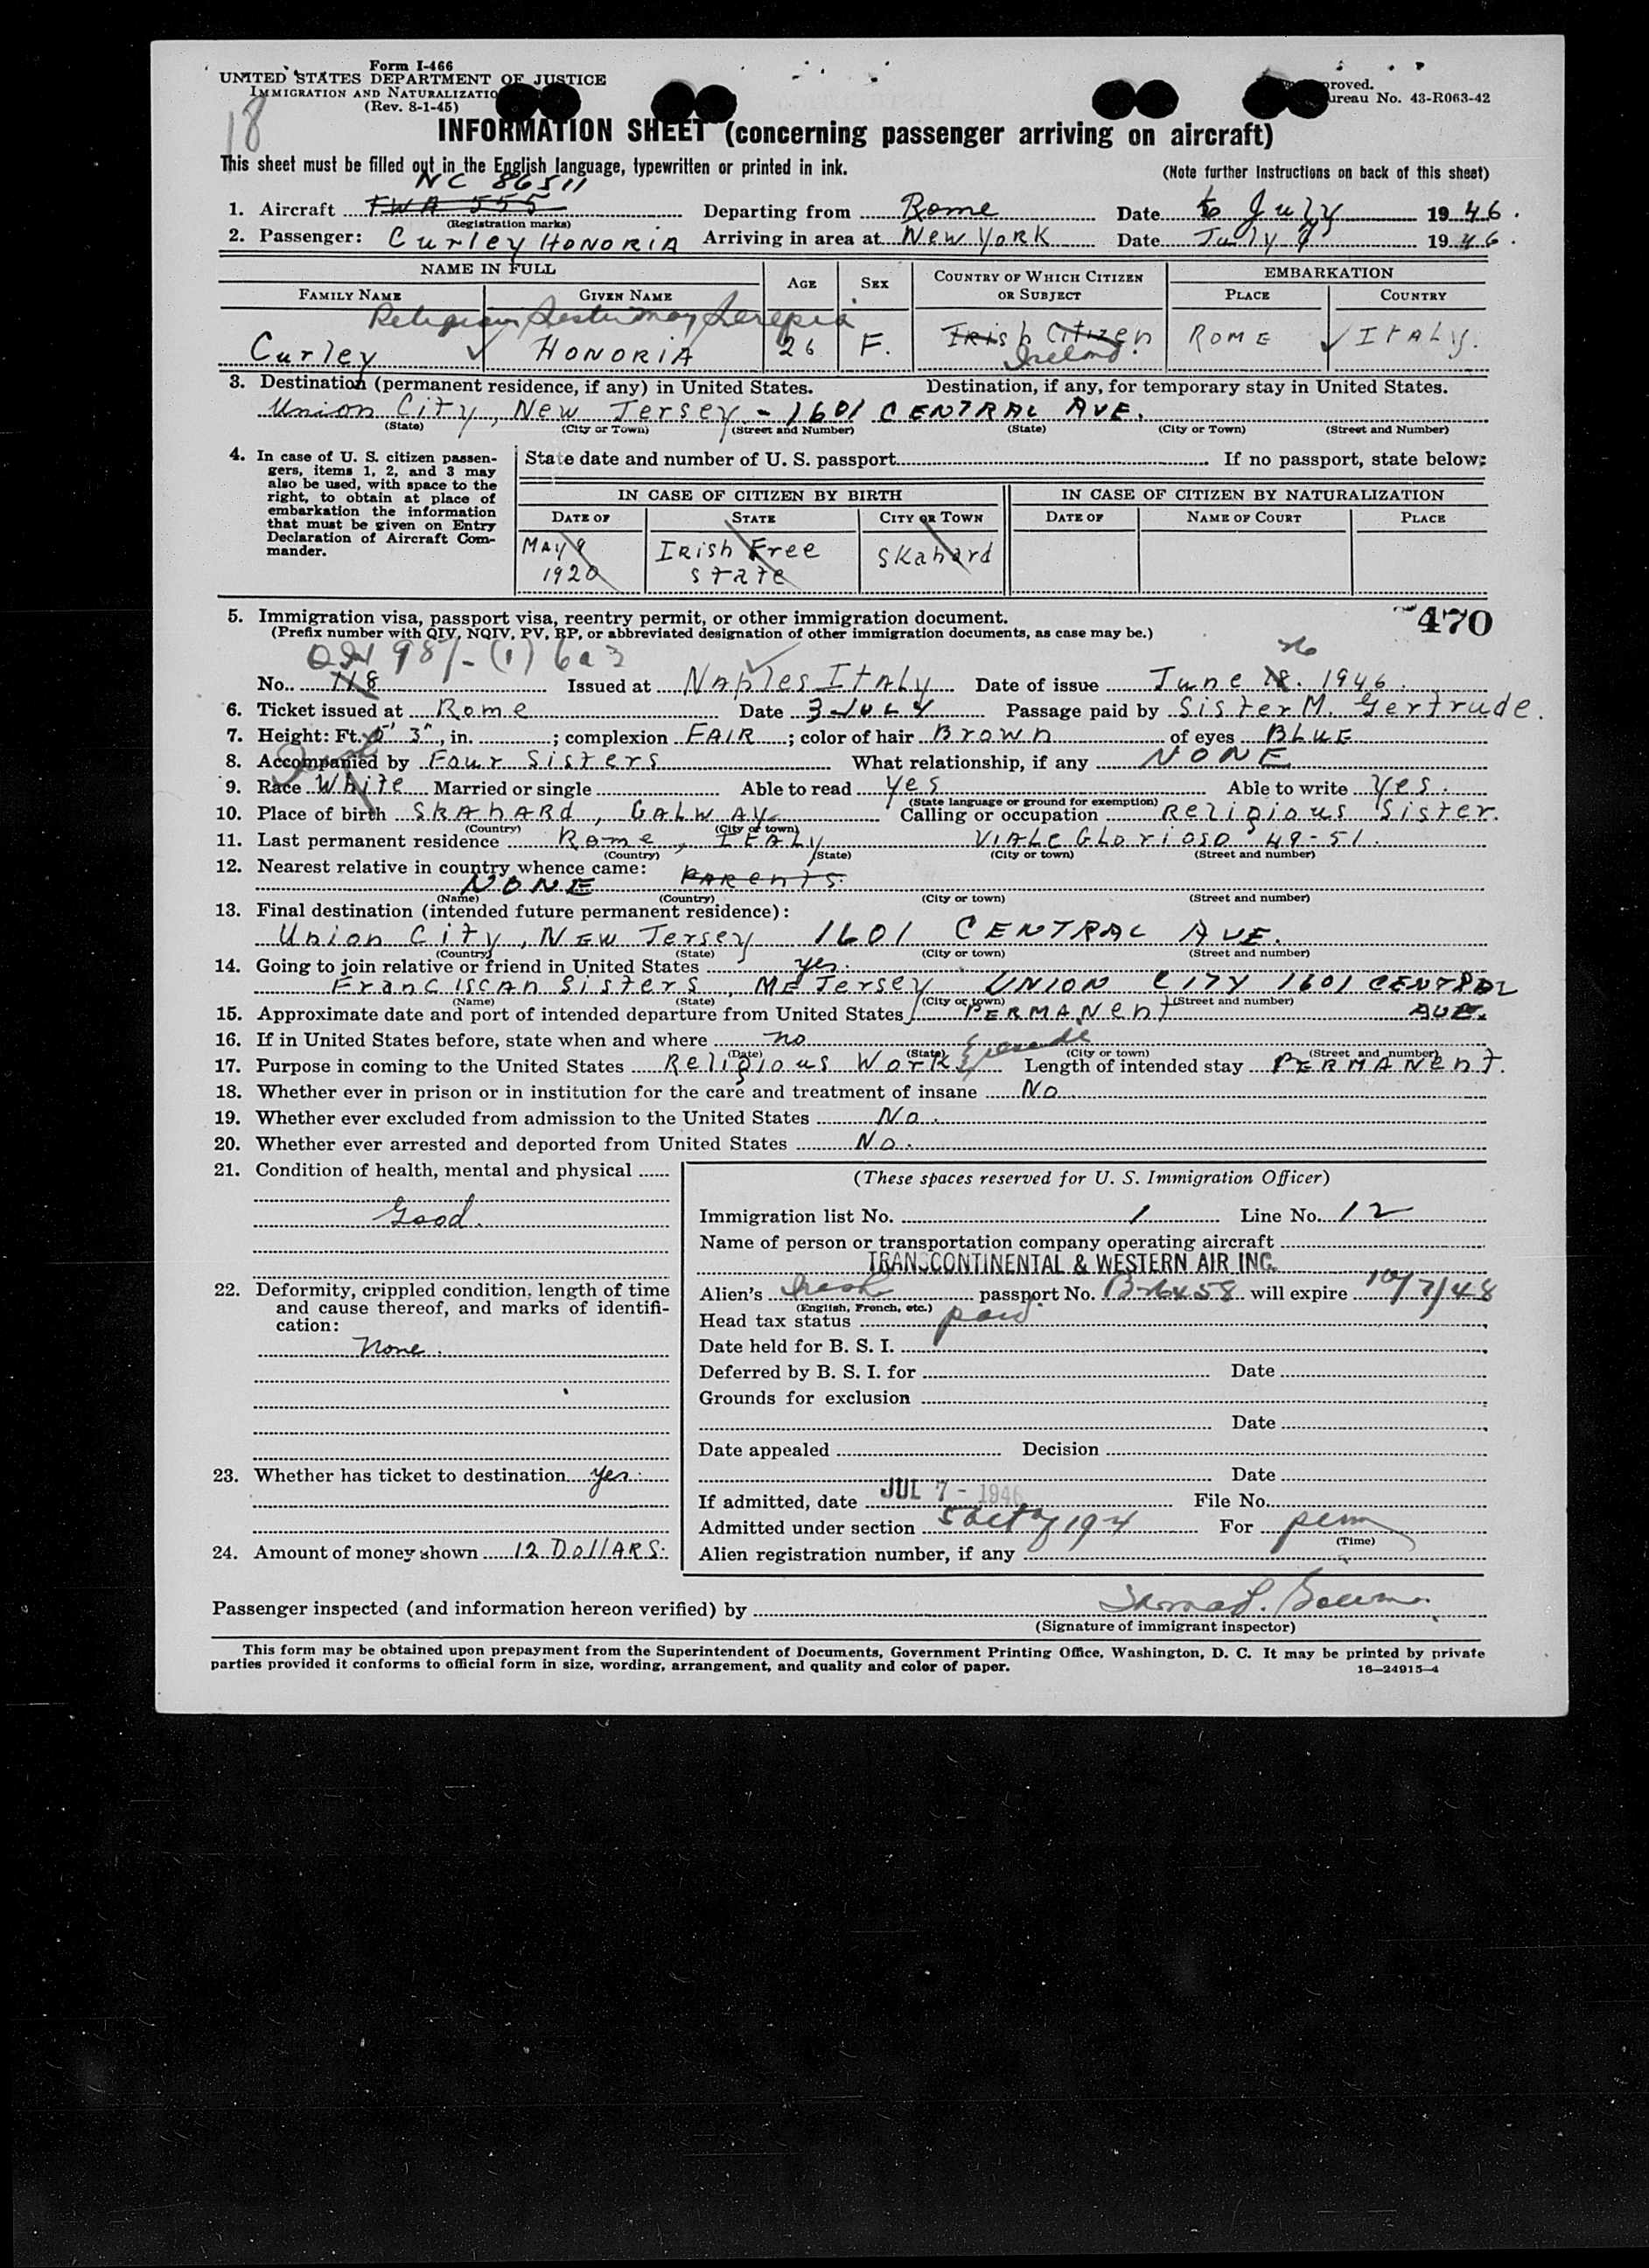 Form I-466
UNITED STATES DEPARTMENT OF JUSTICE
IMMIGRATION AND NATURALIZATIO
(Rev. 8-1-45)
roved.
ureau No. 43-R063-42
18
INFORMATION SHEET (concerning passenger arriving on aircraft)
This sheet must be filled out in the English language, typewritten or printed in ink. (Note further Instructions on back of this sheet)
NC 86511
1. Aircraft TWA 555 Departing from Rome Date 6 July 1946.
(Registration marks)
2. Passenger: Curley HONORIA Arriving in area at New YORK Date July 7 1946.
NAME IN FULL AGE SEX COUNTRY OF WHICH CITIZEN OR SUBJECT EMBARKATION
FAMILY NAME GIVEN NAME PLACE COUNTRY
Religious Sister Mary
Curley HONORIA 26 F. Irish Citizen ROME ITALY.
Ireland
3. Destination (permanent residence, if any) in United States. Destination, if any, for temporary stay in United States.
Union City, New Jersey - 1601 CENTRAL AVE.
(State) (City or Town) (Street and Number) (State) (City or Town) (Street and Number)
4. In case of U. S. citizen passengers, items 1, 2, and 3 may also be used, with space to the right, to obtain at place of embarkation the information that must be given on Entry Declaration of Aircraft Commander.
State date and number of U. S. passport If no passport, state below:
IN CASE OF CITIZEN BY BIRTH IN CASE OF CITIZEN BY NATURALIZATION
DATE OF STATE CITY OR TOWN DATE OF NAME OF COURT PLACE
MAY 9 1920 IRish Free state Skahard
5. Immigration visa, passport visa, reentry permit, or other immigration document.
(Prefix number with QIV, NQIV, PV, RP, or abbreviated designation of other immigration documents, as case may be.)
470
26
No. 118 Issued at NAples ITALy Date of issue June 18. 1946.
6. Ticket issued at Rome Date 3 JULY Passage paid by Sister M. Gertrude.
7. Height: Ft. 5' 3", in. ; complexion FAIR ; color of hair Brown of eyes BLUE
8. Accompanied by Four Sisters What relationship, if any NONE
Irish
9. Race White Married or single Able to read yes Able to write yes.
(State language or ground for exemption)
10. Place of birth SKAHARd, GALWAY Calling or occupation Religious Sister.
(Country) (City or town)
11. Last permanent residence Rome, ITALy VIALE GLorioso 49-51.
(Country) (State) (City or town) (Street and number)
12. Nearest relative in country whence came:
NONE PARents.
(Name) (Country) (City or town) (Street and number)
13. Final destination (intended future permanent residence):
Union City, NEW Jersey 1601 CENTRAL AVE.
(Country) (State) (City or town) (Street and number)
14. Going to join relative or friend in United States yes.
FRANCISCAN Sisters, Jersey UNION CITY 1601 CENTRAL
(Name) (State) (City or town) (Street and number)
15. Approximate date and port of intended departure from United States PERMANent AVE.
16. If in United States before, state when and where no
(Date) (State) (City or town) (Street and number)
17. Purpose in coming to the United States Religious Work reside Length of intended stay PERMANent.
18. Whether ever in prison or in institution for the care and treatment of insane No
19. Whether ever excluded from admission to the United States No.
20. Whether ever arrested and deported from United States No.
21. Condition of health, mental and physical
Good.
22. Deformity, crippled condition, length of time and cause thereof, and marks of identification:
None.
23. Whether has ticket to destination yes.
24. Amount of money shown 12 DollARS.
(These spaces reserved for U. S. Immigration Officer)
Immigration list No. 1 Line No. 12
Name of person or transportation company operating aircraft
TRANSCONTINENTAL & WESTERN AIR INC.
Alien's Irish passport No. will expire 10/7/48
(English, French, etc.)
Head tax status paid
Date held for B. S. I.
Deferred by B. S. I. for Date
Grounds for exclusion
Date
Date appealed Decision
Date
If admitted, date JUL 7 - 1946 File No.
Admitted under section 5 act of 1924 For perm
(Time)
Alien registration number, if any
Passenger inspected (and information hereon verified) by
(Signature of immigrant inspector)
This form may be obtained upon prepayment from the Superintendent of Documents, Government Printing Office, Washington, D. C. It may be printed by private
parties provided it conforms to official form in size, wording, arrangement, and quality and color of paper. 16—24915-4